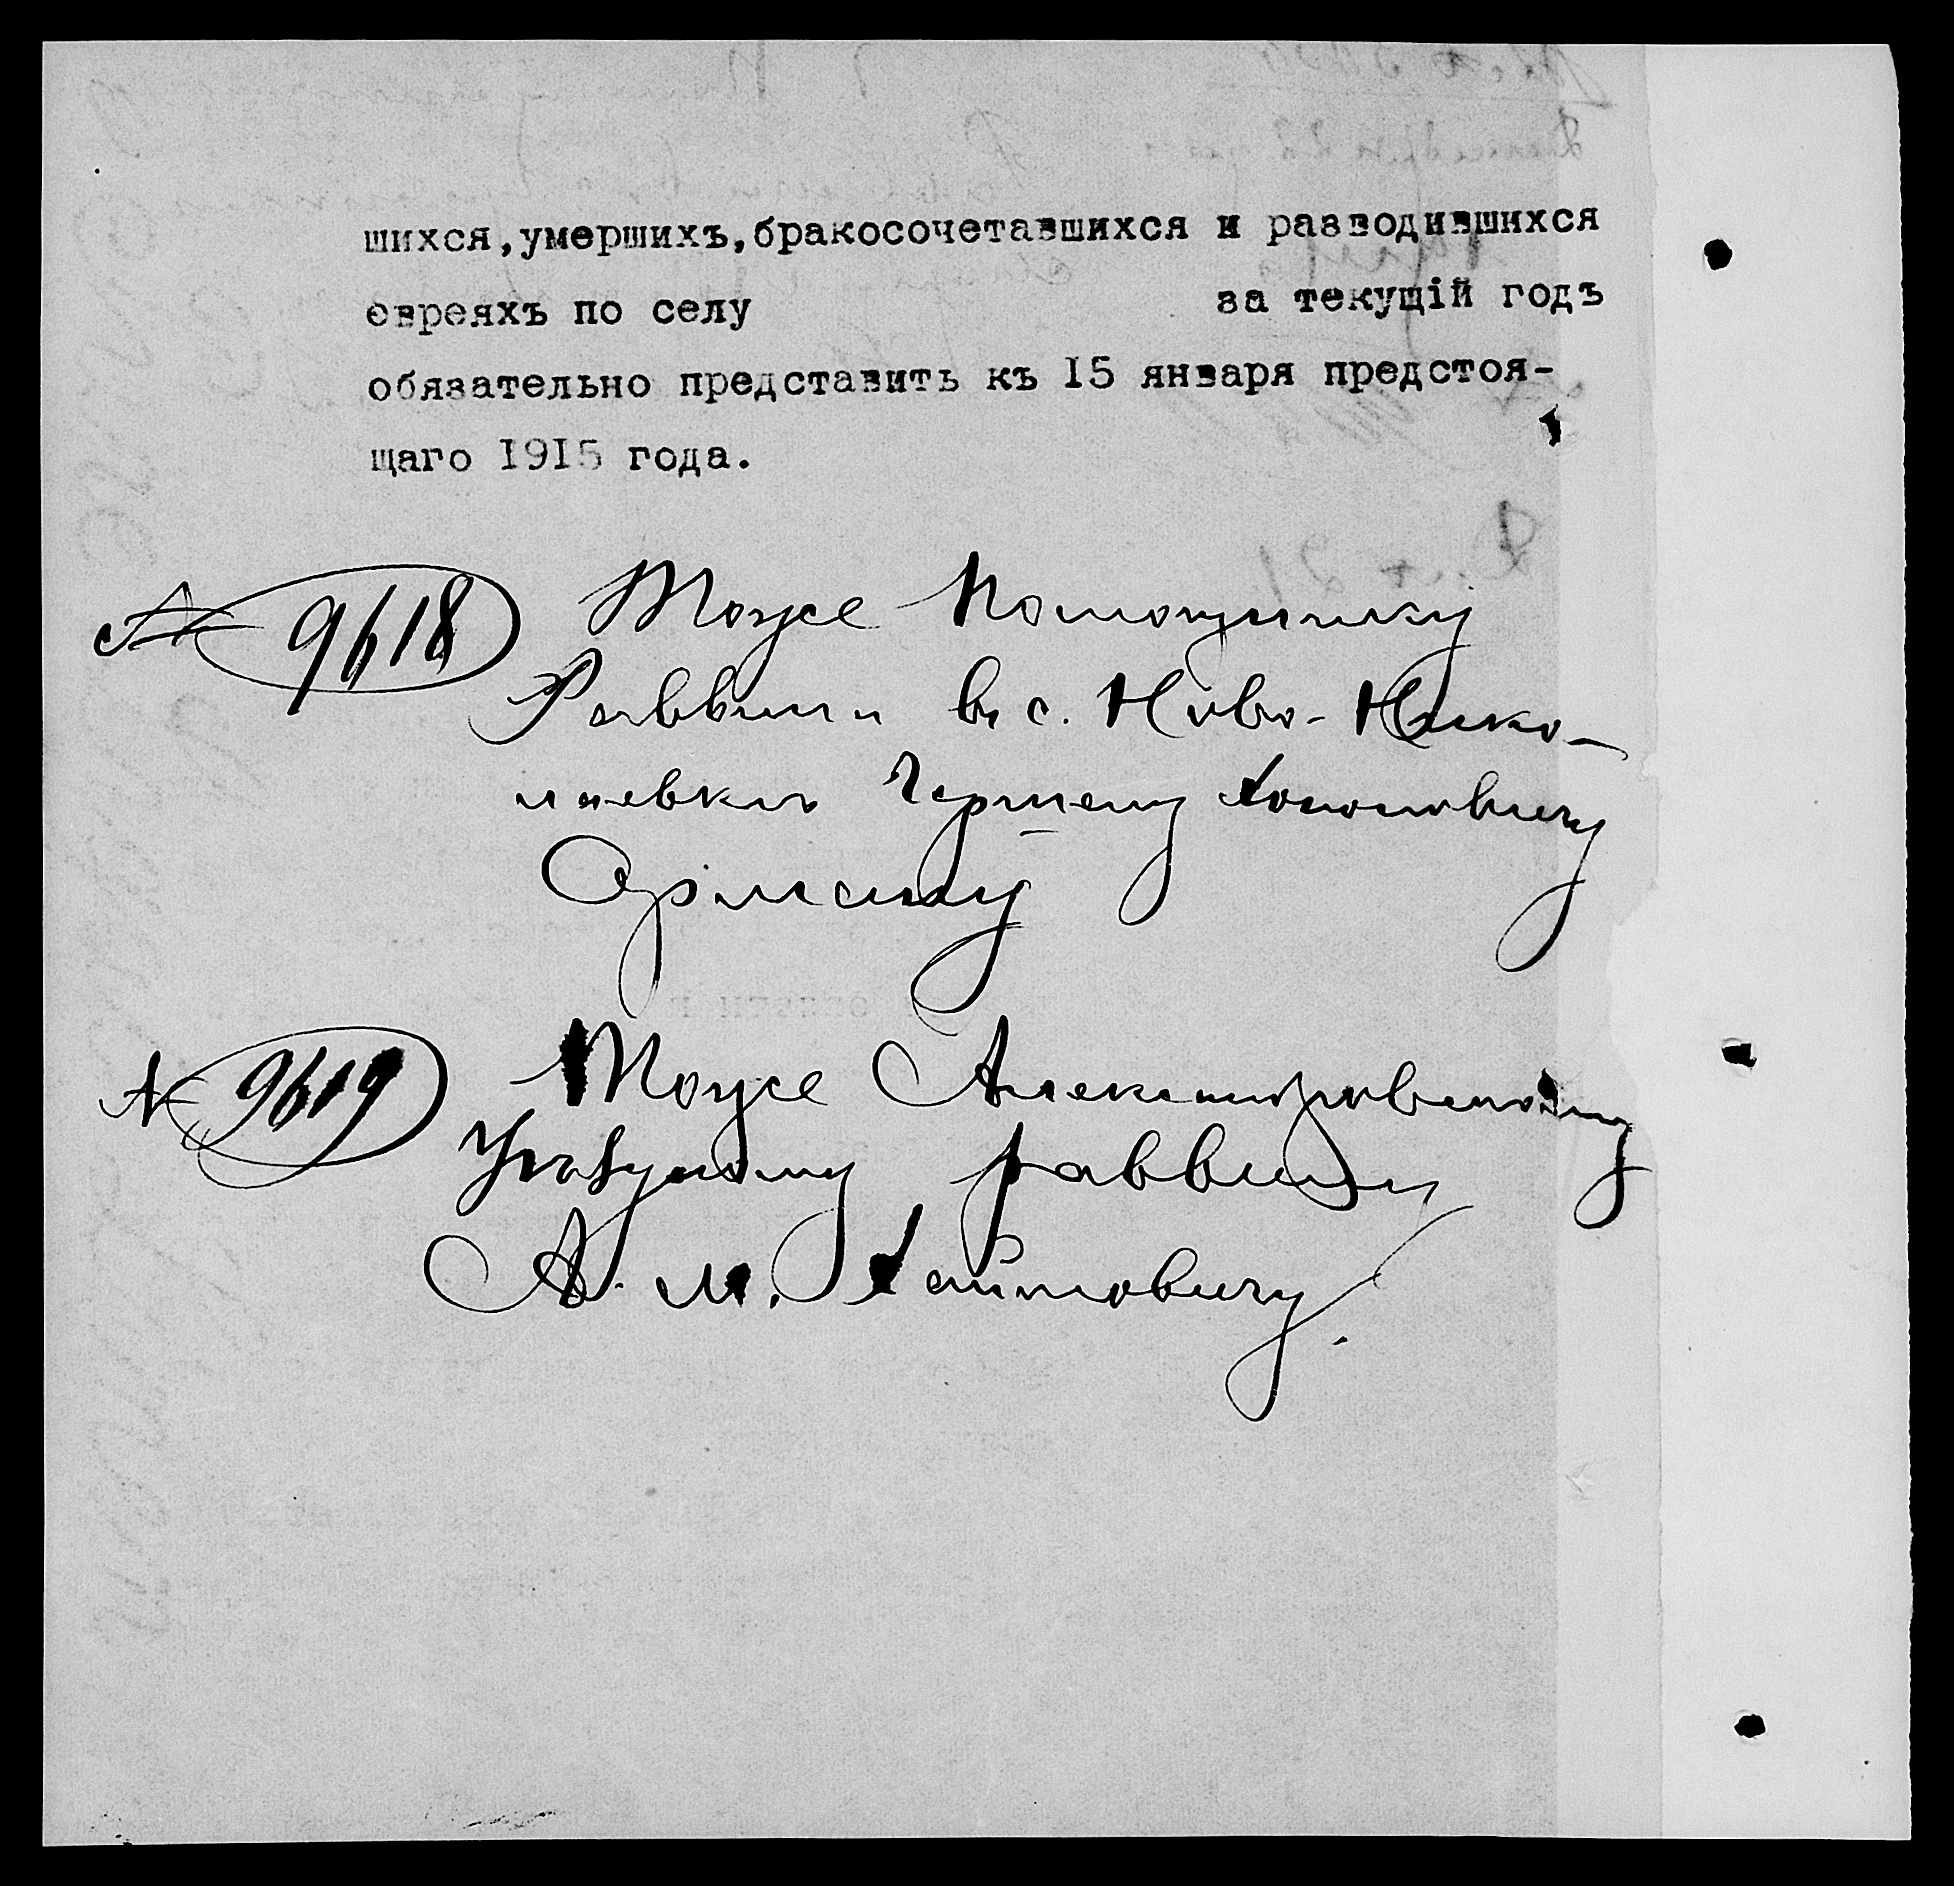 шихся, умершихъ, бракосочетавшихся и разводившихся
евреяхъ по селу за текущій годъ
обязательно представить къ 15 января предстоя-
щаго 1915 года.
№ 9618 Тоже Помощнику
Раввина въ с. Ново-Нико-
лаевкѣ
№ 9619 Тоже Александровскому
Уѣздному раввину
А. М. Хаитовичу.